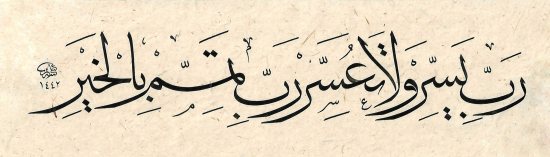 رَبِّ يَسِّرْ وَلَا تُعَسِّرْ رَبِّ تَمِّمْ بِالْخَيْرِ
١٤٤٢